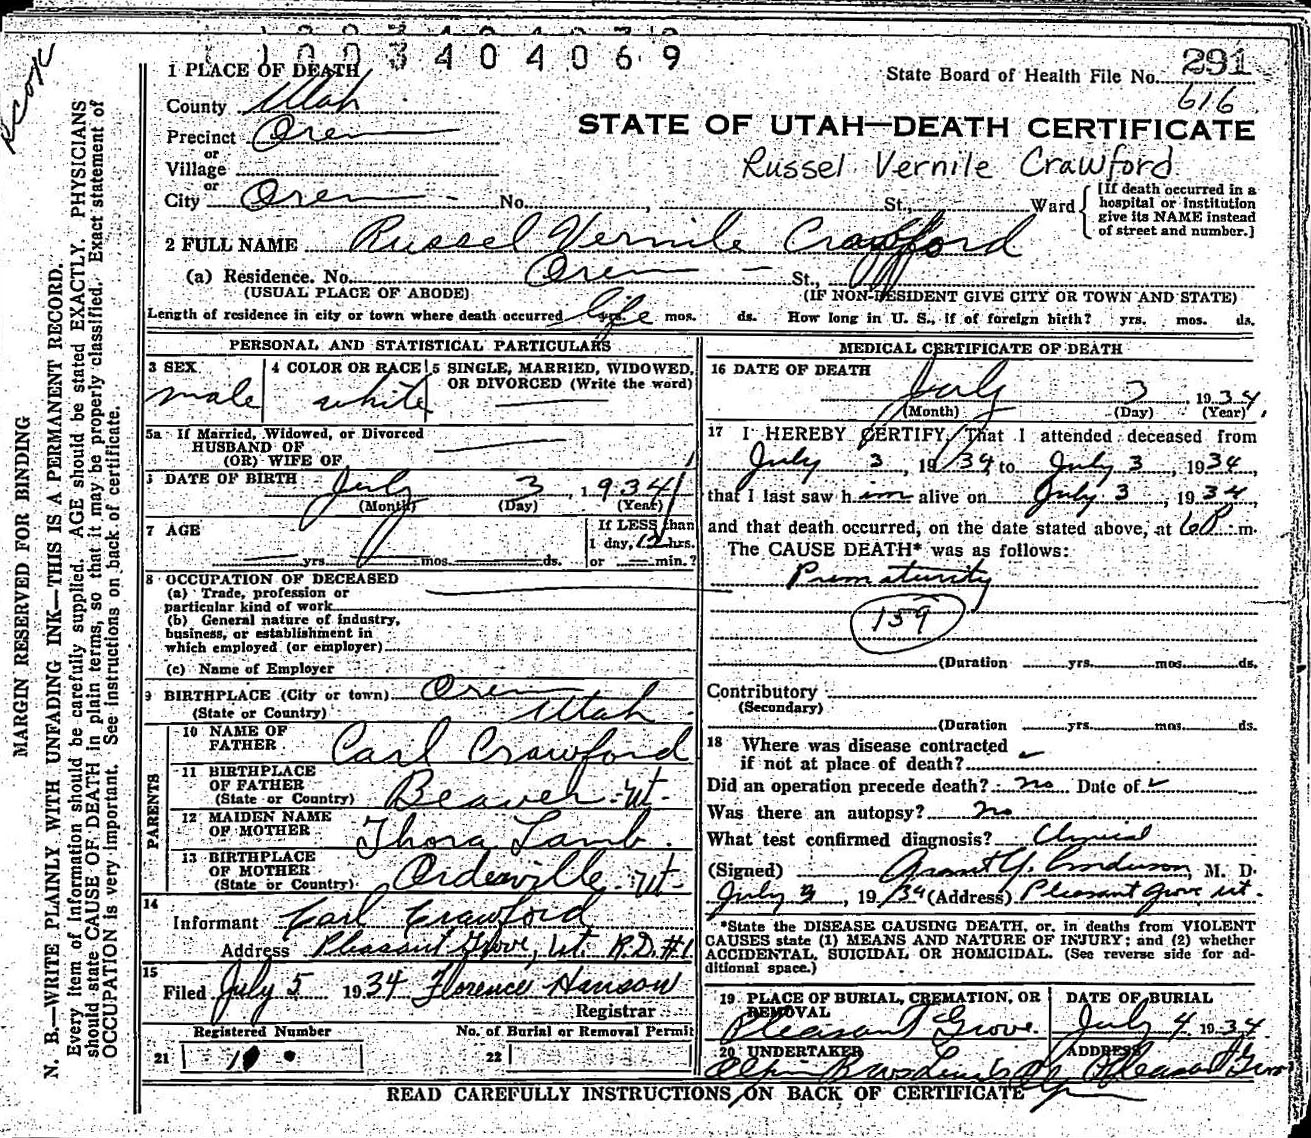 1003404069
1 PLACE OF DEATH
State Board of Health File No. 291
616
County Utah
Precinct Orem
STATE OF UTAH—DEATH CERTIFICATE
or
Village
Russel Vernile Crawford
or
City Orem No. , St., Ward { [If death occurred in a hospital or institution give its NAME instead of street and number.]
2 FULL NAME Russel Vernile Crawford
(a) Residence. No. Orem St.,
(USUAL PLACE OF ABODE) (IF NON-RESIDENT GIVE CITY OR TOWN AND STATE)
Length of residence in city or town where death occurred life yrs. mos. ds. How long in U. S., if of foreign birth? yrs. mos. ds.
PERSONAL AND STATISTICAL PARTICULARS
3 SEX 4 COLOR OR RACE 5 SINGLE, MARRIED, WIDOWED,
OR DIVORCED (Write the word)
male white
5a If Married, Widowed, or Divorced
HUSBAND OF
(OR) WIFE OF
DATE OF BIRTH July 3, 1934
(Month) (Day) (Year)
7 AGE If LESS than
1 day, 12 hrs.
yrs. mos. ds. or min.?
8 OCCUPATION OF DECEASED
(a) Trade, profession or
particular kind of work
(b) General nature of industry,
business, or establishment in
which employed (or employer)
(c) Name of Employer
9 BIRTHPLACE (City or town) Orem
(State or Country) Utah
PARENTS
10 NAME OF
FATHER Carl Crawford
11 BIRTHPLACE
OF FATHER
(State or Country) Beaver - Ut-
12 MAIDEN NAME
OF MOTHER Thora Lamb.
13 BIRTHPLACE
OF MOTHER
(State or Country) Orderville - Ut-
14
Informant Carl Crawford
Address Pleasant Grove, Ut. R.D. #1
15
Filed July 5 1934 Florence Hanson
Registrar
Registered Number No. of Burial or Removal Permit
21 22
MEDICAL CERTIFICATE OF DEATH
16 DATE OF DEATH
July 3, 1934
(Month) (Day) (Year)
17 I HEREBY CERTIFY, That I attended deceased from
July 3, 1934 to July 3, 1934
that I last saw him alive on July 3, 1934
and that death occurred, on the date stated above, at 6 P. m.
The CAUSE DEATH* was as follows:
Prematurity
159
(Duration yrs. mos. ds.
Contributory
(Secondary)
(Duration yrs. mos. ds.
18 Where was disease contracted
if not at place of death?
Did an operation precede death? no Date of
Was there an autopsy? No
What test confirmed diagnosis? Clinical
(Signed) Grant Y. Anderson, M. D.
July 3, 1934 (Address) Pleasant Grove Ut.
*State the DISEASE CAUSING DEATH, or, in deaths from VIOLENT
CAUSES state (1) MEANS AND NATURE OF INJURY; and (2) whether
ACCIDENTAL, SUICIDAL OR HOMICIDAL. (See reverse side for ad-
ditional space.)
19 PLACE OF BURIAL, CREMATION, OR REMOVAL DATE OF BURIAL
Pleasant Grove. July 4 1934
20 UNDERTAKER ADDRESS
READ CAREFULLY INSTRUCTIONS ON BACK OF CERTIFICATE
MARGIN RESERVED FOR BINDING
N. B.—WRITE PLAINLY WITH UNFADING INK—THIS IS A PERMANENT RECORD.
Every item of information should be carefully supplied. AGE should be stated EXACTLY. PHYSICIANS
should state CAUSE OF DEATH in plain terms, so that it may be properly classified. Exact statement of
OCCUPATION is very important. See instructions on back of certificate.